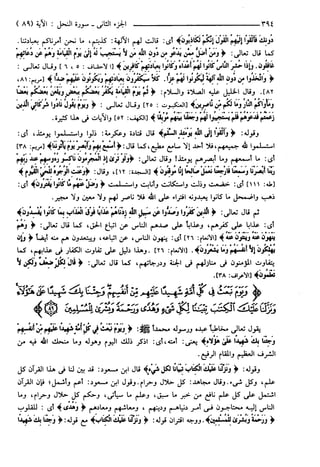 ٣٩٤ الجزء الثاني - سورة النحل : الآية (٨٩)
دونك فَأَلْقَوْا إِلَيْهِمُ الْقَوْلَ إِنَّكُمْ لَكَاذِبُونَ﴾ أي: قالت لهم الآلهة: كذبتم، ما نحن أمرناكم بعبادتنا.
كما قال تعالى: ﴿وَمَنْ أَضَلُّ مِمَّن يَدْعُو مِن دُونِ اللَّهِ مَن لَّا يَسْتَجِيبُ لَهُ إِلَىٰ يَوْمِ الْقِيَامَةِ وَهُمْ عَن دُعَائِهِمْ
غَافِلُونَ. وَإِذَا حُشِرَ النَّاسُ كَانُوا لَهُمْ أَعْدَاءً وَكَانُوا بِعِبَادَتِهِمْ كَافِرِينَ﴾ [الأحقاف: ٥، ٦] وقال تعالى:
﴿وَاتَّخَذُوا مِن دُونِ اللَّهِ آلِهَةً لِّيَكُونُوا لَهُمْ عِزًّا. كَلَّا سَيَكْفُرُونَ بِعِبَادَتِهِمْ وَيَكُونُونَ عَلَيْهِمْ ضِدًّا﴾ [مريم: ٨١،
٨٢]. وقال الخليل عليه الصلاة والسلام: ﴿ثُمَّ يَوْمَ الْقِيَامَةِ يَكْفُرُ بَعْضُكُم بِبَعْضٍ وَيَلْعَنُ بَعْضُكُم بَعْضًا
وَمَأْوَاكُمُ النَّارُ وَمَا لَكُم مِّن نَّاصِرِينَ﴾ [العنكبوت: ٢٥] وقال تعالى: ﴿وَيَوْمَ يَقُولُ نَادُوا شُرَكَائِيَ الَّذِينَ
زَعَمْتُمْ فَدَعَوْهُمْ فَلَمْ يَسْتَجِيبُوا لَهُمْ وَجَعَلْنَا بَيْنَهُم مَّوْبِقًا﴾ [الكهف: ٥٢] والآيات في هذا كثيرة.
وقوله: ﴿وَأَلْقَوْا إِلَى اللَّهِ يَوْمَئِذٍ السَّلَمَ﴾ قال قتادة وعكرمة: ذلوا واستسلموا يومئذ، أي:
استسلموا لله جميعهم، فلا أحد إلا سامع مطيع، كما قال: ﴿أَسْمِعْ بِهِمْ وَأَبْصِرْ يَوْمَ يَأْتُونَنَا﴾ [مريم: ٣٨]
أي: ما أسمعهم وما أبصرهم يومئذ! وقال تعالى: ﴿وَلَوْ تَرَىٰ إِذِ الْمُجْرِمُونَ نَاكِسُو رُءُوسِهِمْ عِندَ رَبِّهِمْ
رَبَّنَا أَبْصَرْنَا وَسَمِعْنَا فَارْجِعْنَا نَعْمَلْ صَالِحًا إِنَّا مُوقِنُونَ﴾ [السجدة: ١٢]، وقال: ﴿وَعَنَتِ الْوُجُوهُ لِلْحَيِّ الْقَيُّومِ﴾
[طه: ١١١] أي: خضعت وذلت واستكانت وأنابت واستسلمت ﴿وَضَلَّ عَنْهُم مَّا كَانُوا يَفْتَرُونَ﴾ أي:
ذهب واضمحل ما كانوا يعبدونه افتراء على الله فلا ناصر لهم ولا معين ولا مجير.
ثم قال تعالى: ﴿الَّذِينَ كَفَرُوا وَصَدُّوا عَن سَبِيلِ اللَّهِ زِدْنَاهُمْ عَذَابًا فَوْقَ الْعَذَابِ بِمَا كَانُوا يُفْسِدُونَ﴾
أي: عذابا على كفرهم، وعذابا على صدهم الناس عن اتباع الحق، كما قال تعالى: ﴿وَهُمْ
يَنْهَوْنَ عَنْهُ وَيَنْأَوْنَ عَنْهُ﴾ [الأنعام: ٢٦] أي: ينهون الناس، عن اتباعه، ويبتعدون هم منه أيضا ﴿وَإِن
يُهْلِكُونَ إِلَّا أَنفُسَهُمْ وَمَا يَشْعُرُونَ﴾. [الأنعام: ٢٦]. وهذا دليل على تفاوت الكفار في عذابهم، كما
يتفاوت المؤمنون في منازلهم في الجنة ودرجاتهم، كما قال تعالى: ﴿قَالَ لِكُلٍّ ضِعْفٌ وَلَٰكِن لَّا
تَعْلَمُونَ﴾ [الأعراف: ٣٨].
﴿وَيَوْمَ نَبْعَثُ فِي كُلِّ أُمَّةٍ شَهِيدًا عَلَيْهِم مِّنْ أَنفُسِهِمْ وَجِئْنَا بِكَ شَهِيدًا عَلَىٰ
هَٰؤُلَاءِ وَنَزَّلْنَا عَلَيْكَ الْكِتَابَ تِبْيَانًا لِّكُلِّ شَيْءٍ وَهُدًى وَرَحْمَةً وَبُشْرَىٰ لِلْمُسْلِمِينَ﴾
يقول تعالى مخاطبا عبده ورسوله محمدا ﷺ: ﴿وَيَوْمَ نَبْعَثُ فِي كُلِّ أُمَّةٍ شَهِيدًا عَلَيْهِم مِّنْ أَنفُسِهِمْ
وَجِئْنَا بِكَ شَهِيدًا عَلَىٰ هَٰؤُلَاءِ﴾ يعني: أمته، أي: اذكر ذلك اليوم وهوله وما منحك الله فيه من
الشرف العظيم والمقام الرفيع.
وقوله: ﴿وَنَزَّلْنَا عَلَيْكَ الْكِتَابَ تِبْيَانًا لِّكُلِّ شَيْءٍ﴾ قال ابن مسعود: قد بين لنا في هذا القرآن كل
علم، وكل شيء. وقال مجاهد: كل حلال وحرام. وقول ابن مسعود: أعم وأشمل؛ فإن القرآن
اشتمل على كل علم نافع من خبر ما سبق، وعلم ما سيأتي، وحكم كل حلال وحرام، وما
الناس إليه محتاجون في أمر دنياهم ودينهم، ومعاشهم ومعادهم ﴿وَهُدًى﴾ أي: للقلوب
﴿وَرَحْمَةً وَبُشْرَىٰ لِلْمُسْلِمِينَ﴾. ووجه اقتران قوله: ﴿وَنَزَّلْنَا عَلَيْكَ الْكِتَابَ﴾ مع قوله: ﴿وَجِئْنَا بِكَ شَهِيدًا